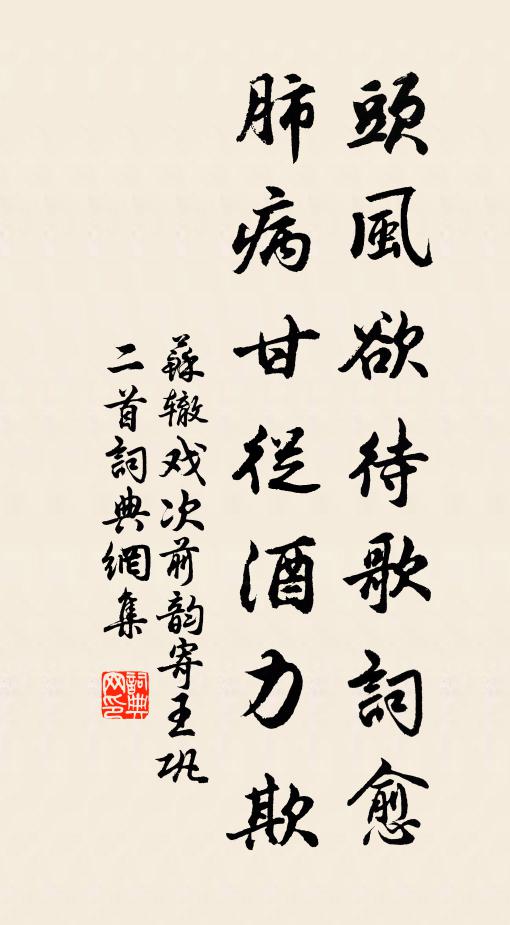 頭風欲待歌詞愈
肺病甘從酒力欺
蘇辙戏次前韵寄王巩
二首詞典網集
詞典网印